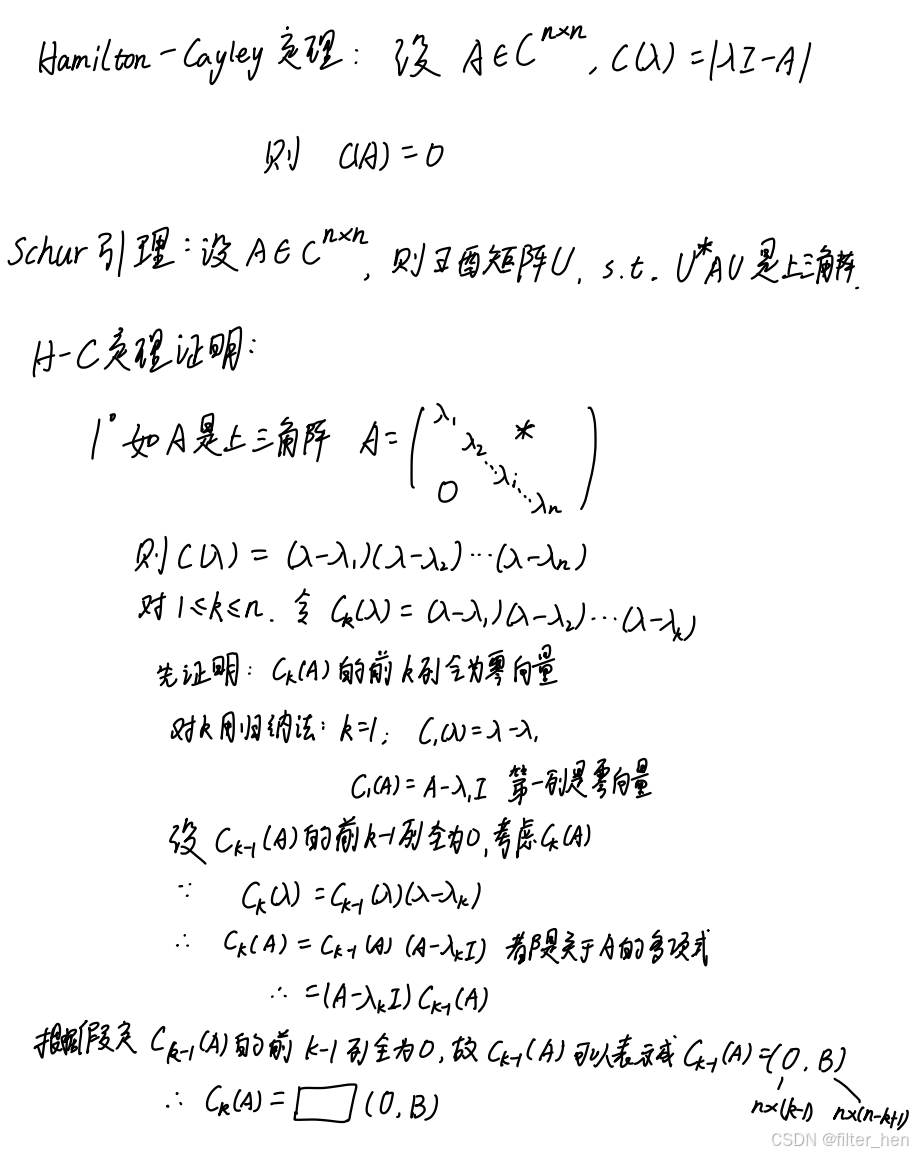 Hamilton-Cayley定理: 设 A∈C^{n×n}, C(λ)=|λI-A|
则 C(A)=0
Schur引理: 设A∈C^{n×n}, 则∃酉矩阵U, s.t. U*AU是上三角阵.
H-C定理证明:
1° 如A是上三角阵 A=(λ₁ λ₂ ⋯ λᵢ ⋯ λₙ * 0)
则C(λ) = (λ-λ₁)(λ-λ₂)⋯(λ-λₙ)
对1≤k≤n. 令 Cₖ(λ) = (λ-λ₁)(λ-λ₂)⋯(λ-λₖ)
先证明: Cₖ(A)的前k列全为零向量
对k用归纳法: k=1; C₁(λ)=λ-λ₁
C₁(A)=A-λ₁I 第一列是零向量
设 Cₖ₋₁(A)的前k-1列全为0,考虑Cₖ(A)
∵ Cₖ(λ)=Cₖ₋₁(λ)(λ-λₖ)
∴ Cₖ(A)=Cₖ₋₁(A)(A-λₖI) 都是关于A的多项式
∴ =(A-λₖI)Cₖ₋₁(A)
根据假定 Cₖ₋₁(A)的前k-1列全为0,故Cₖ₋₁(A)可以表示成Cₖ₋₁(A)=(0,B)
n×(k-1) n×(n-k+1)
∴ Cₖ(A)=□(0,B)
CSDN @filter_hen